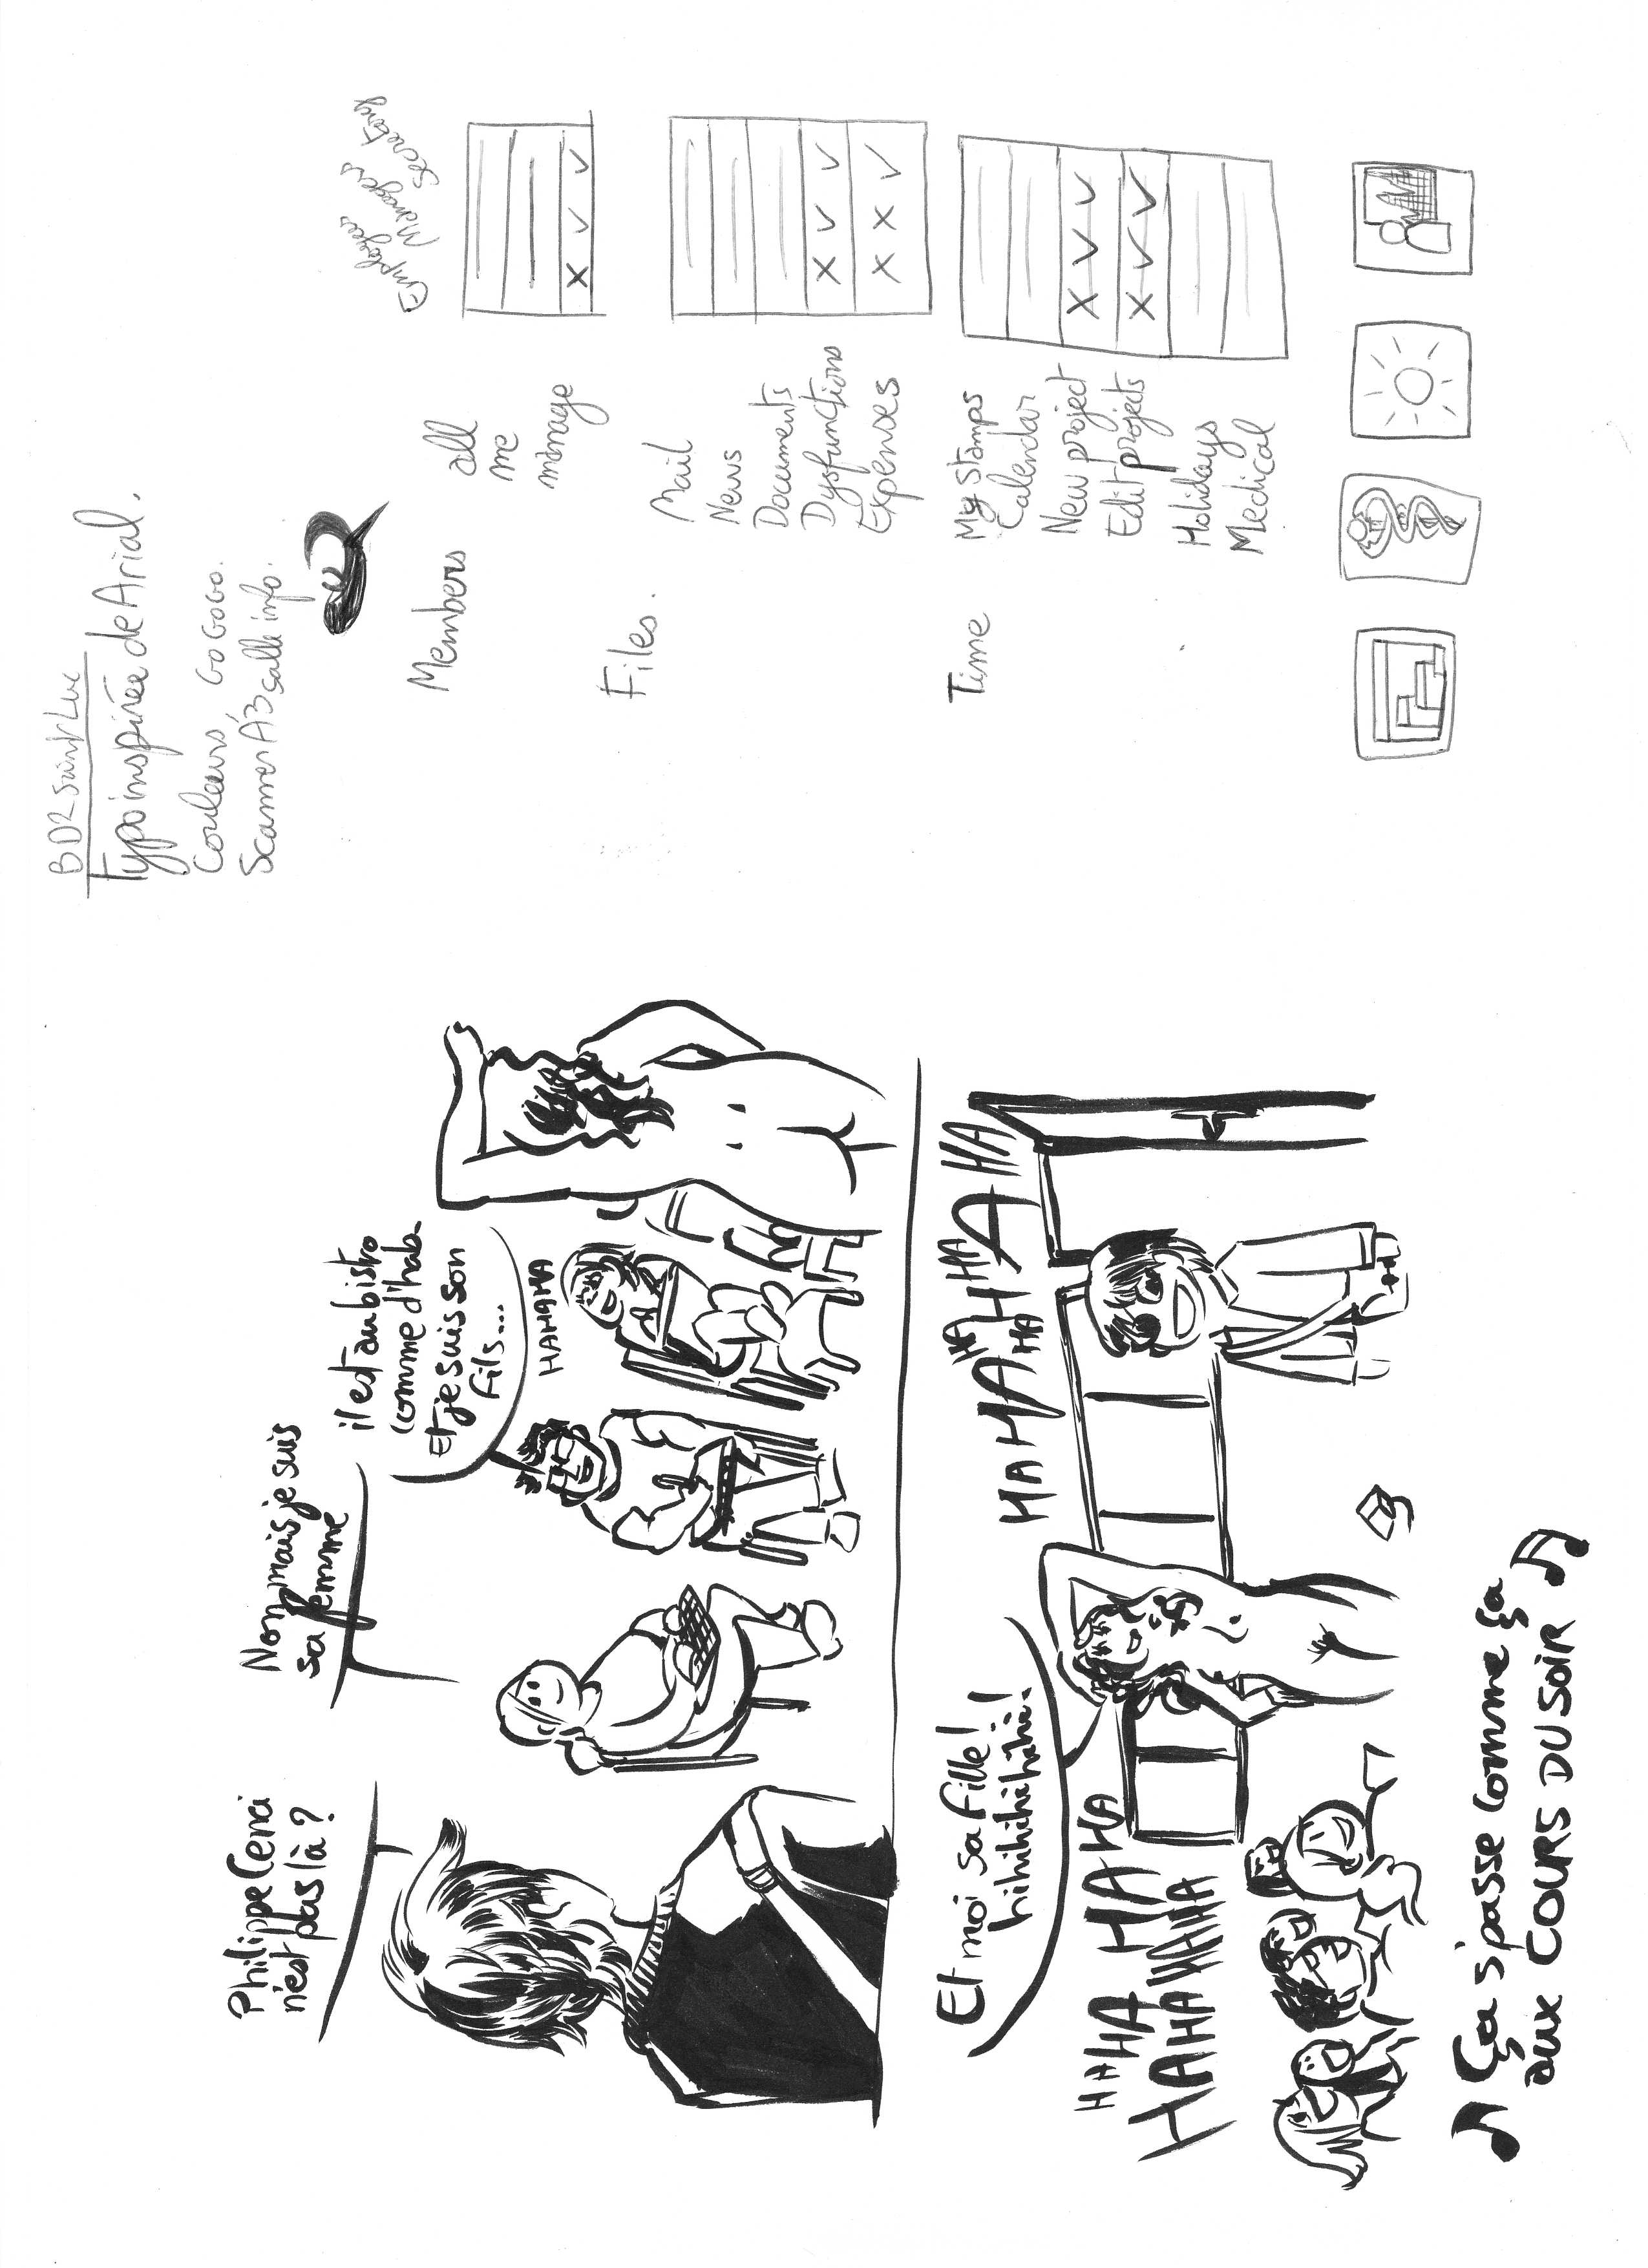 Philippe Cenci
n'est pas là ?
Non mais je suis
sa femme
il est au bistro
comme d'hab.
Et je suis son
fils...
HAHAHA
Et moi sa fille !
hihihihihihi !
HAHA HAHA
HAHAHAHA
HAHAHAHAHA
HA HA HA
HA
♪ Ça s'passe comme ça
aux COURS DU SOIR ♫
BD2 Saint Luc
Typo inspirée de Arial.
Couleurs GoGoGo.
Scanner A3 salle info.
Employees
Managers
Secretary
Members
all
me
manage
X V V
Files.
Mail
News
Documents
Dysfunctions
X V V
Expenses
X X V
Time
My stamps
Calendar
New project
X V V
Edit projects
X V V
Holidays
Medical